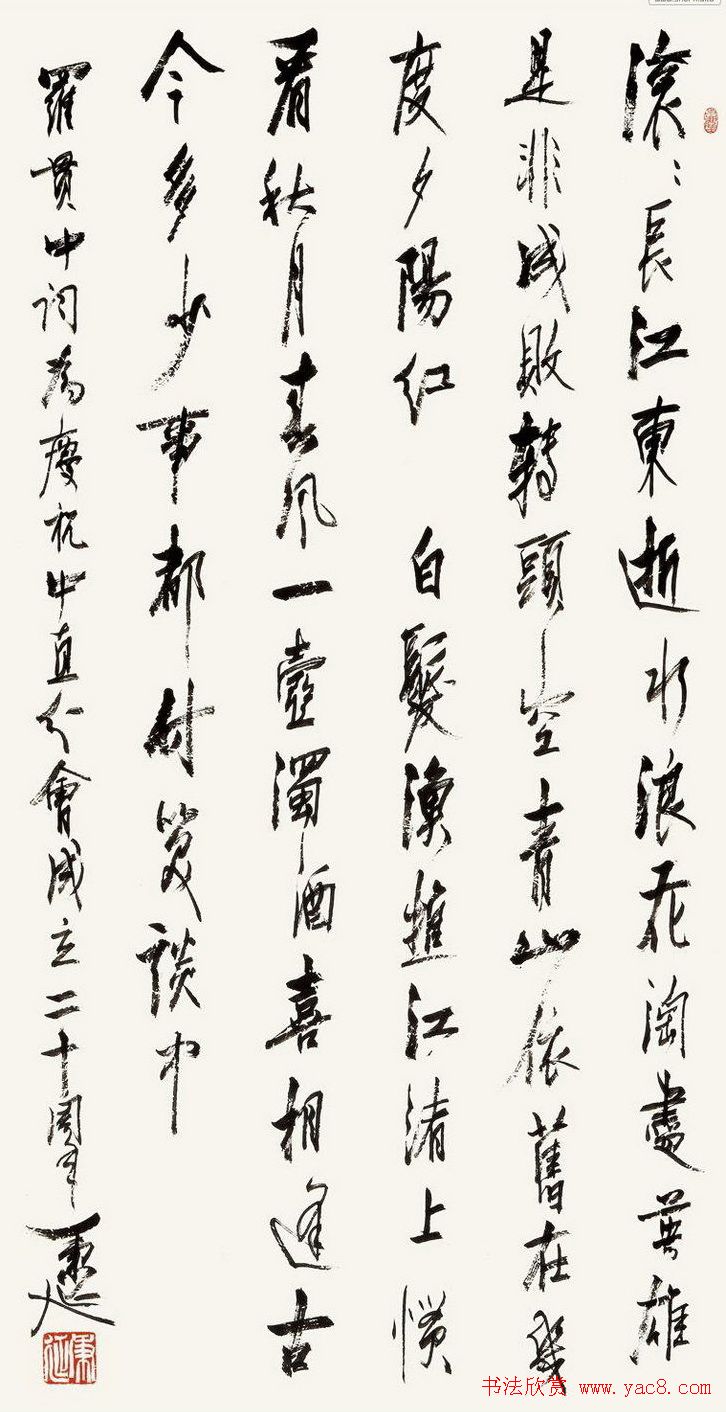 滚〻長江東逝水浪花淘盡英雄
是非成敗轉頭空青山依舊在幾
度夕陽紅 白髮漁樵江渚上慣
看秋月春風一壺濁酒喜相逢古
今多少事都付笑談中
羅貫中詞為慶祝中直分會成立二十周年
书法欣赏 www.yac8.com